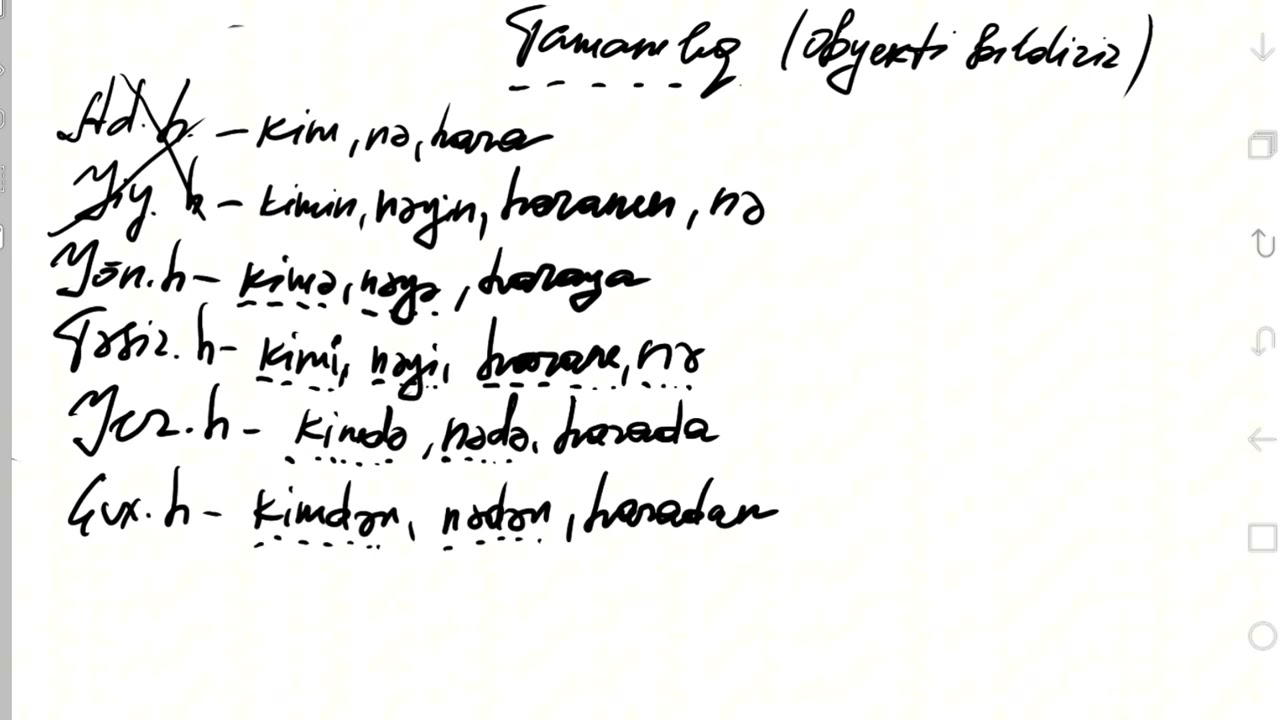 Tamamlıq (obyekti bildirir)
Ad. h. – kim, nə, hara
Yiy. h – kimin, nəyin, haranın, nə
Yön. h – kimə, nəyə, haraya
Təsir. h – kimi, nəyi, haranı, nə
Yer. h – kimdə, nədə, harada
Çıx. h – kimdən, nədən, haradan